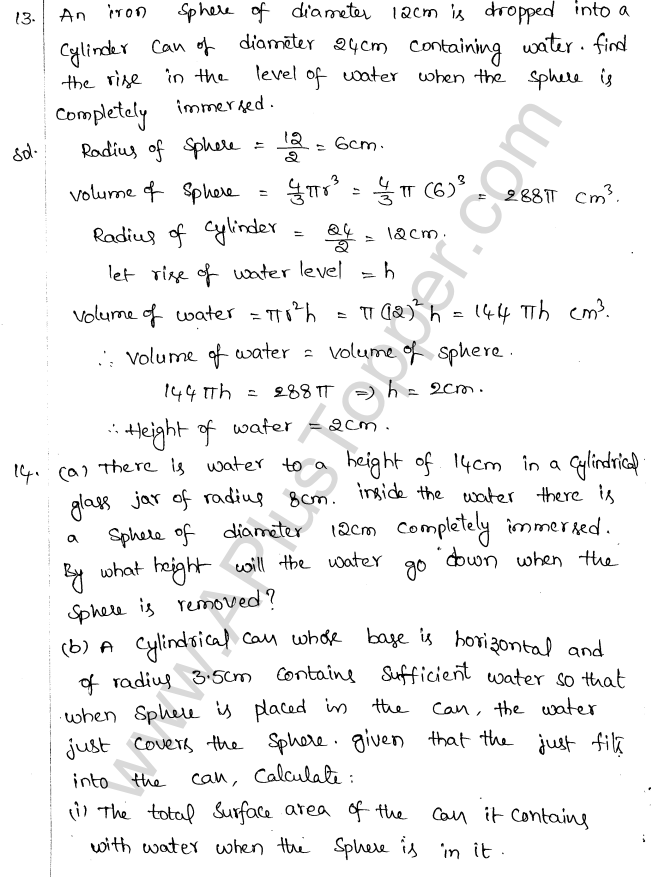 13. An iron sphere of diameter 12cm is dropped into a
cylinder can of diameter 24cm containing water. find
the rise in the level of water when the sphere is
completely immersed.
Sol. Radius of sphere = 12/2 = 6cm.
volume of sphere = 4/3 πr³ = 4/3 π (6)³ = 288π cm³.
Radius of cylinder = 24/2 = 12cm.
let rise of water level = h
volume of water = πr²h = π(12)²h = 144 πh cm³.
∴ volume of water = volume of sphere.
144πh = 288π ⇒ h = 2cm.
∴ Height of water = 2cm.
14. (a) There is water to a height of 14cm in a cylindrical
glass jar of radius 8cm. inside the water there is
a sphere of diameter 12cm completely immersed.
By what height will the water go down when the
sphere is removed?
(b) A cylindrical can whose base is horizontal and
of radius 3.5cm contains sufficient water so that
when sphere is placed in the can, the water
just covers the sphere. given that the just fits
into the can, calculate:
(i) The total surface area of the can it contains
with water when the sphere is in it.
www.APlusTopper.com